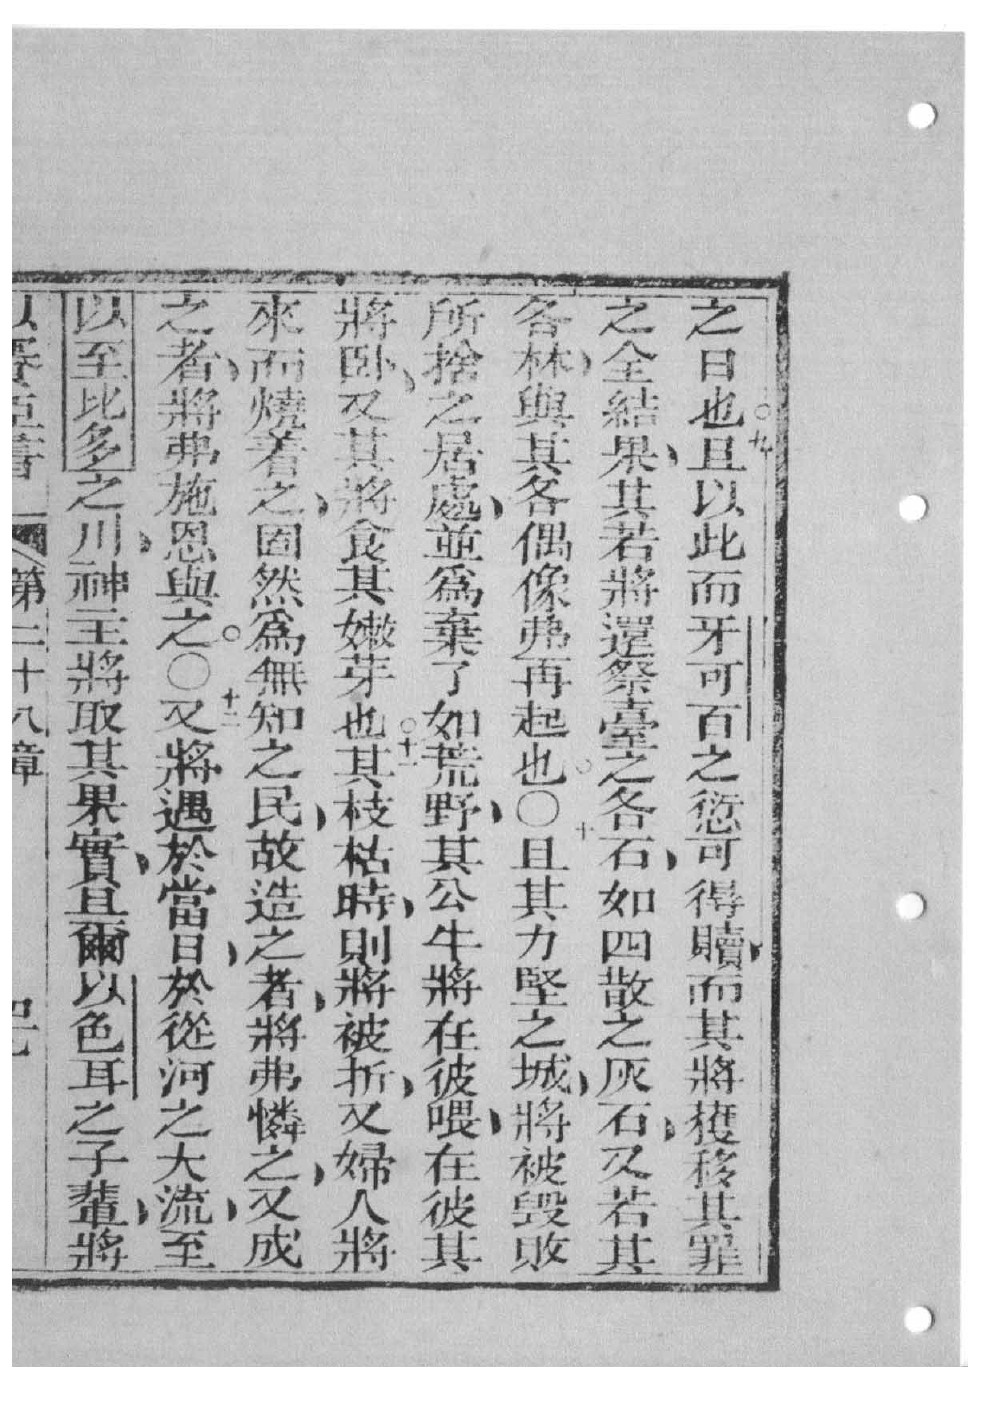 之日也○九且以此而牙可百之愆可得贖而其將獲移其罪
之全結果其若將還祭臺之各石如四散之灰石又若其
各林與其各偶像弗再起也○十且其力堅之城將被毀敗
所捨之居處並為棄了如荒野其公牛將在彼喂在彼其
將卧又其將食其嫩芽也○十一其枝枯時則將被折又婦人將
來而燒着之固然為無知之民故造之者將弗憐之又成
之者將弗施恩與之○十二又將遇於當日於從河之大流至
以至比多之川神主將取其果實且爾以色耳之子輩將
以賽亞書 第二十八章